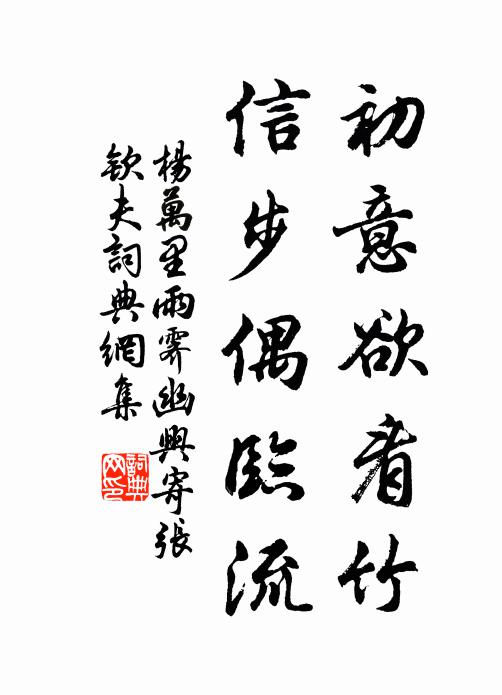 初意欲看竹
信步偶臨流
楊萬里雨霽幽興寄張
欽夫詞典網集
詞典
网印